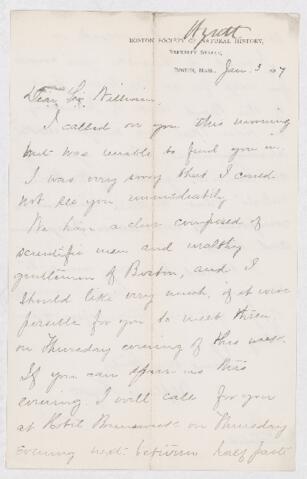 Hyatt
BOSTON SOCIETY OF NATURAL HISTORY,
BERKELEY STREET,
BOSTON, MASS. Jan. 3
Dear Sir William.
I called on you this morning
but was unable to find you in.
I was very sorry that I could
not see you immediately.
We have a club composed of
scientific men and wealthy
gentlemen of Boston, and I
should like very much, if it were
possible for you to meet them
on Thursday evening of this week.
If you can spare us this
evening I will call for you
at Hotel Brunswick on Thursday
evening next between half past